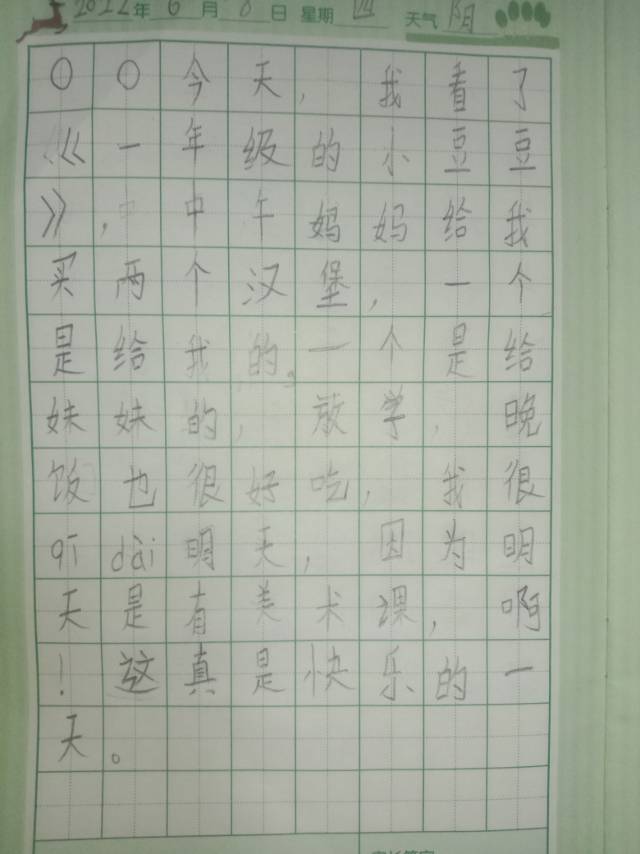 2022年6月8日 星期四 天气阴
〇〇今天，我看了
《一年级的小豆豆
》，中中午妈妈给我
买两个汉堡，一个
是给我的。一个是给
妹妹的，放学，晚
饭也很好吃，我很
qī dài明天，因为明
天是有美术课，啊
！这真是快乐的一
天。